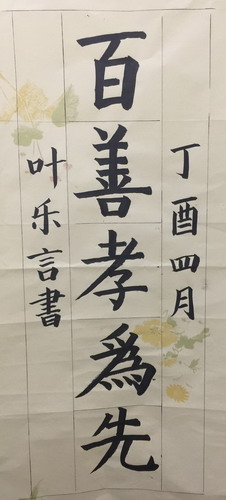 丁酉四月
百善孝為先
叶乐言書